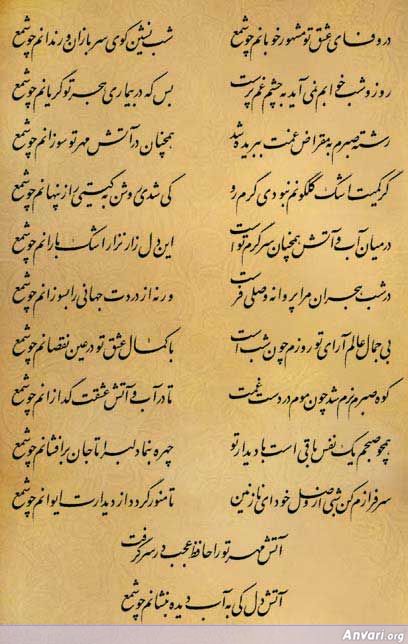 در وفای عشق تو مشهور خوبانم چو شمع شب نشین کوی سربازان و رندانم چو شمع
روز و شب خوابم نمی آید به چشم غم پرست بس که در بیماری هجر تو گریانم چو شمع
رشته صبرم به مقراض غمت ببریده شد همچنان در آتش مهر تو سوزانم چو شمع
گر کمیت اشک گلگونم نبودی گرم رو کی شدی روشن به گیتی راز پنهانم چو شمع
در میان آب و آتش همچنان سرگرم تو است این دل زار نزار اشک بارانم چو شمع
در شب هجران مرا پروانه وصلی فرست ور نه از دردت جهانی را بسوزانم چو شمع
بی جمال عالم آرای تو روزم چون شب است با کمال عشق تو در عین نقصانم چو شمع
کوه صبرم نرم شد چون موم در دست غمت تا در آب و آتش عشقت گدازانم چو شمع
همچو صبحم یک نفس باقی است با دیدار تو چهره بنما دلبرا تا جان برافشانم چو شمع
سرفرازم کن شبی از وصل خود ای نازنین تا منور گردد از دیدارت ایوانم چو شمع
آتش مهر تو را حافظ عجب در سر گرفت
آتش دل کی به آب دیده بنشانم چو شمع
Anvari.org